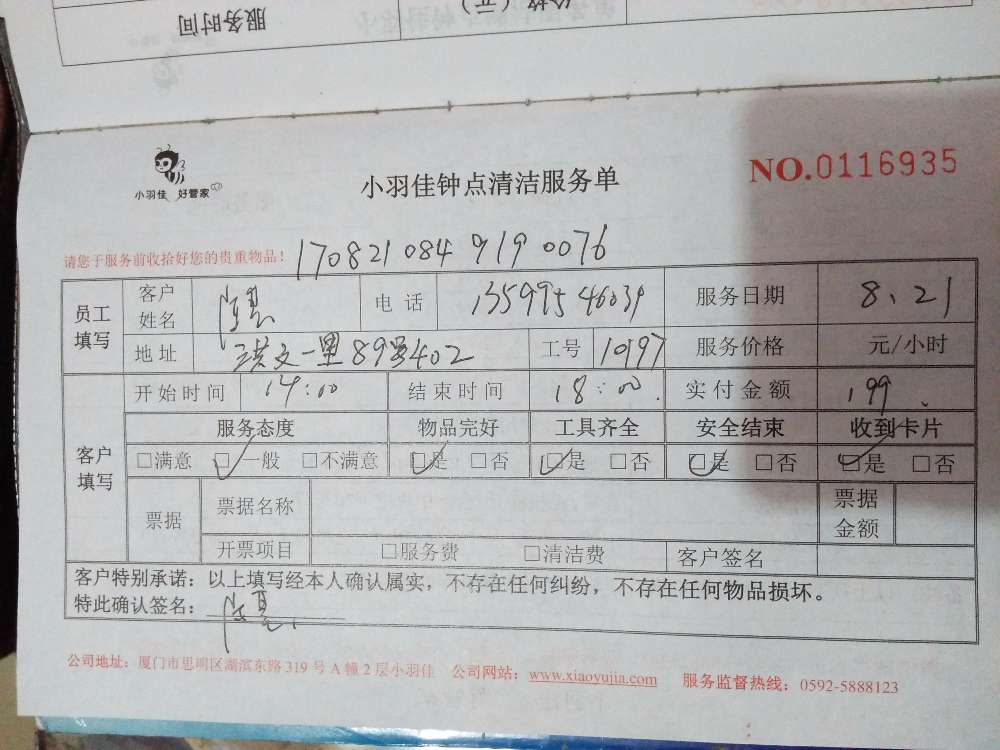 服务时间
价格（元）
小羽佳 好管家
小羽佳钟点清洁服务单
NO.0116935
请您于服务前收拾好您的贵重物品！ 170821084 9190076
员工填写 客户姓名 电话 13599546039 服务日期 8、21
地址 洪文一里89号402 工号 10197 服务价格 元/小时
客户填写 开始时间 14:00 结束时间 18:00. 实付金额 199、
服务态度 物品完好 工具齐全 安全结束 收到卡片
□满意 □一般 □不满意 □是 □否 □是 □否 □是 □否 □是 □否
票据 票据名称 票据金额
开票项目 □服务费 □清洁费 客户签名
客户特别承诺：以上填写经本人确认属实，不存在任何纠纷，不存在任何物品损坏。
特此确认签名：
公司地址：厦门市思明区湖滨东路319号A幢2层小羽佳 公司网站：www.xiaoyujia.com 服务监督热线：0592-5888123